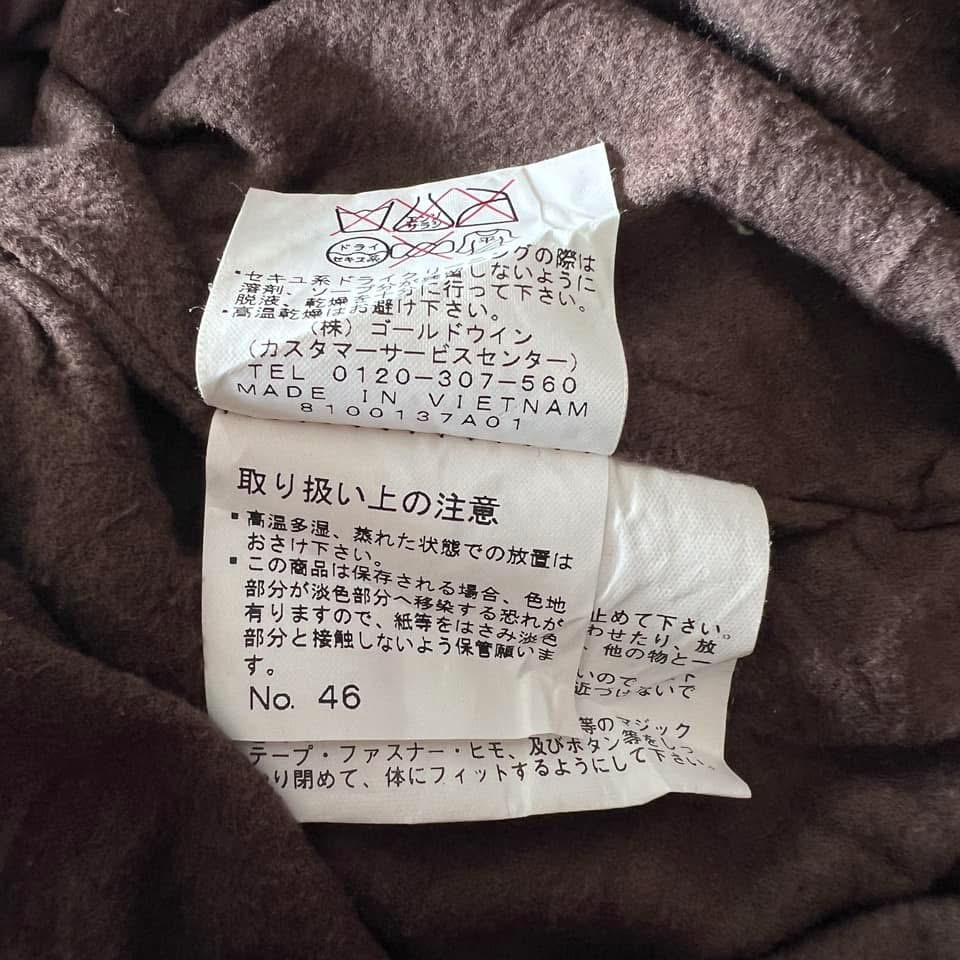 ドライ
セキユ系
エンソ
サラシ
平
・セキュ系ドライクリーニングの際は
溶剤、ソー
しないように
脱液、乾燥を
に行って下さい。
・高温乾燥はお避け下さい。
(株)ゴールドウイン
(カスタマーサービスセンター)
TEL 0120-307-560
MADE IN VIETNAM
8100137A01
取り扱い上の注意
▪高温多湿、蒸れた状態での放置は
おさけ下さい。
▪この商品は保存される場合、色地
部分が淡色部分へ移染する恐れが
有りますので、紙等をはさみ淡色
部分と接触しないよう保管願いま
す。
No. 46
止めて下さい。
わせたり、放
、他の物と一
いので
近づけないで
等のマジック
テープ・ファスナー・ヒモ、及びボタン等をしっ
かり閉めて、体にフィットするようにして下さい。